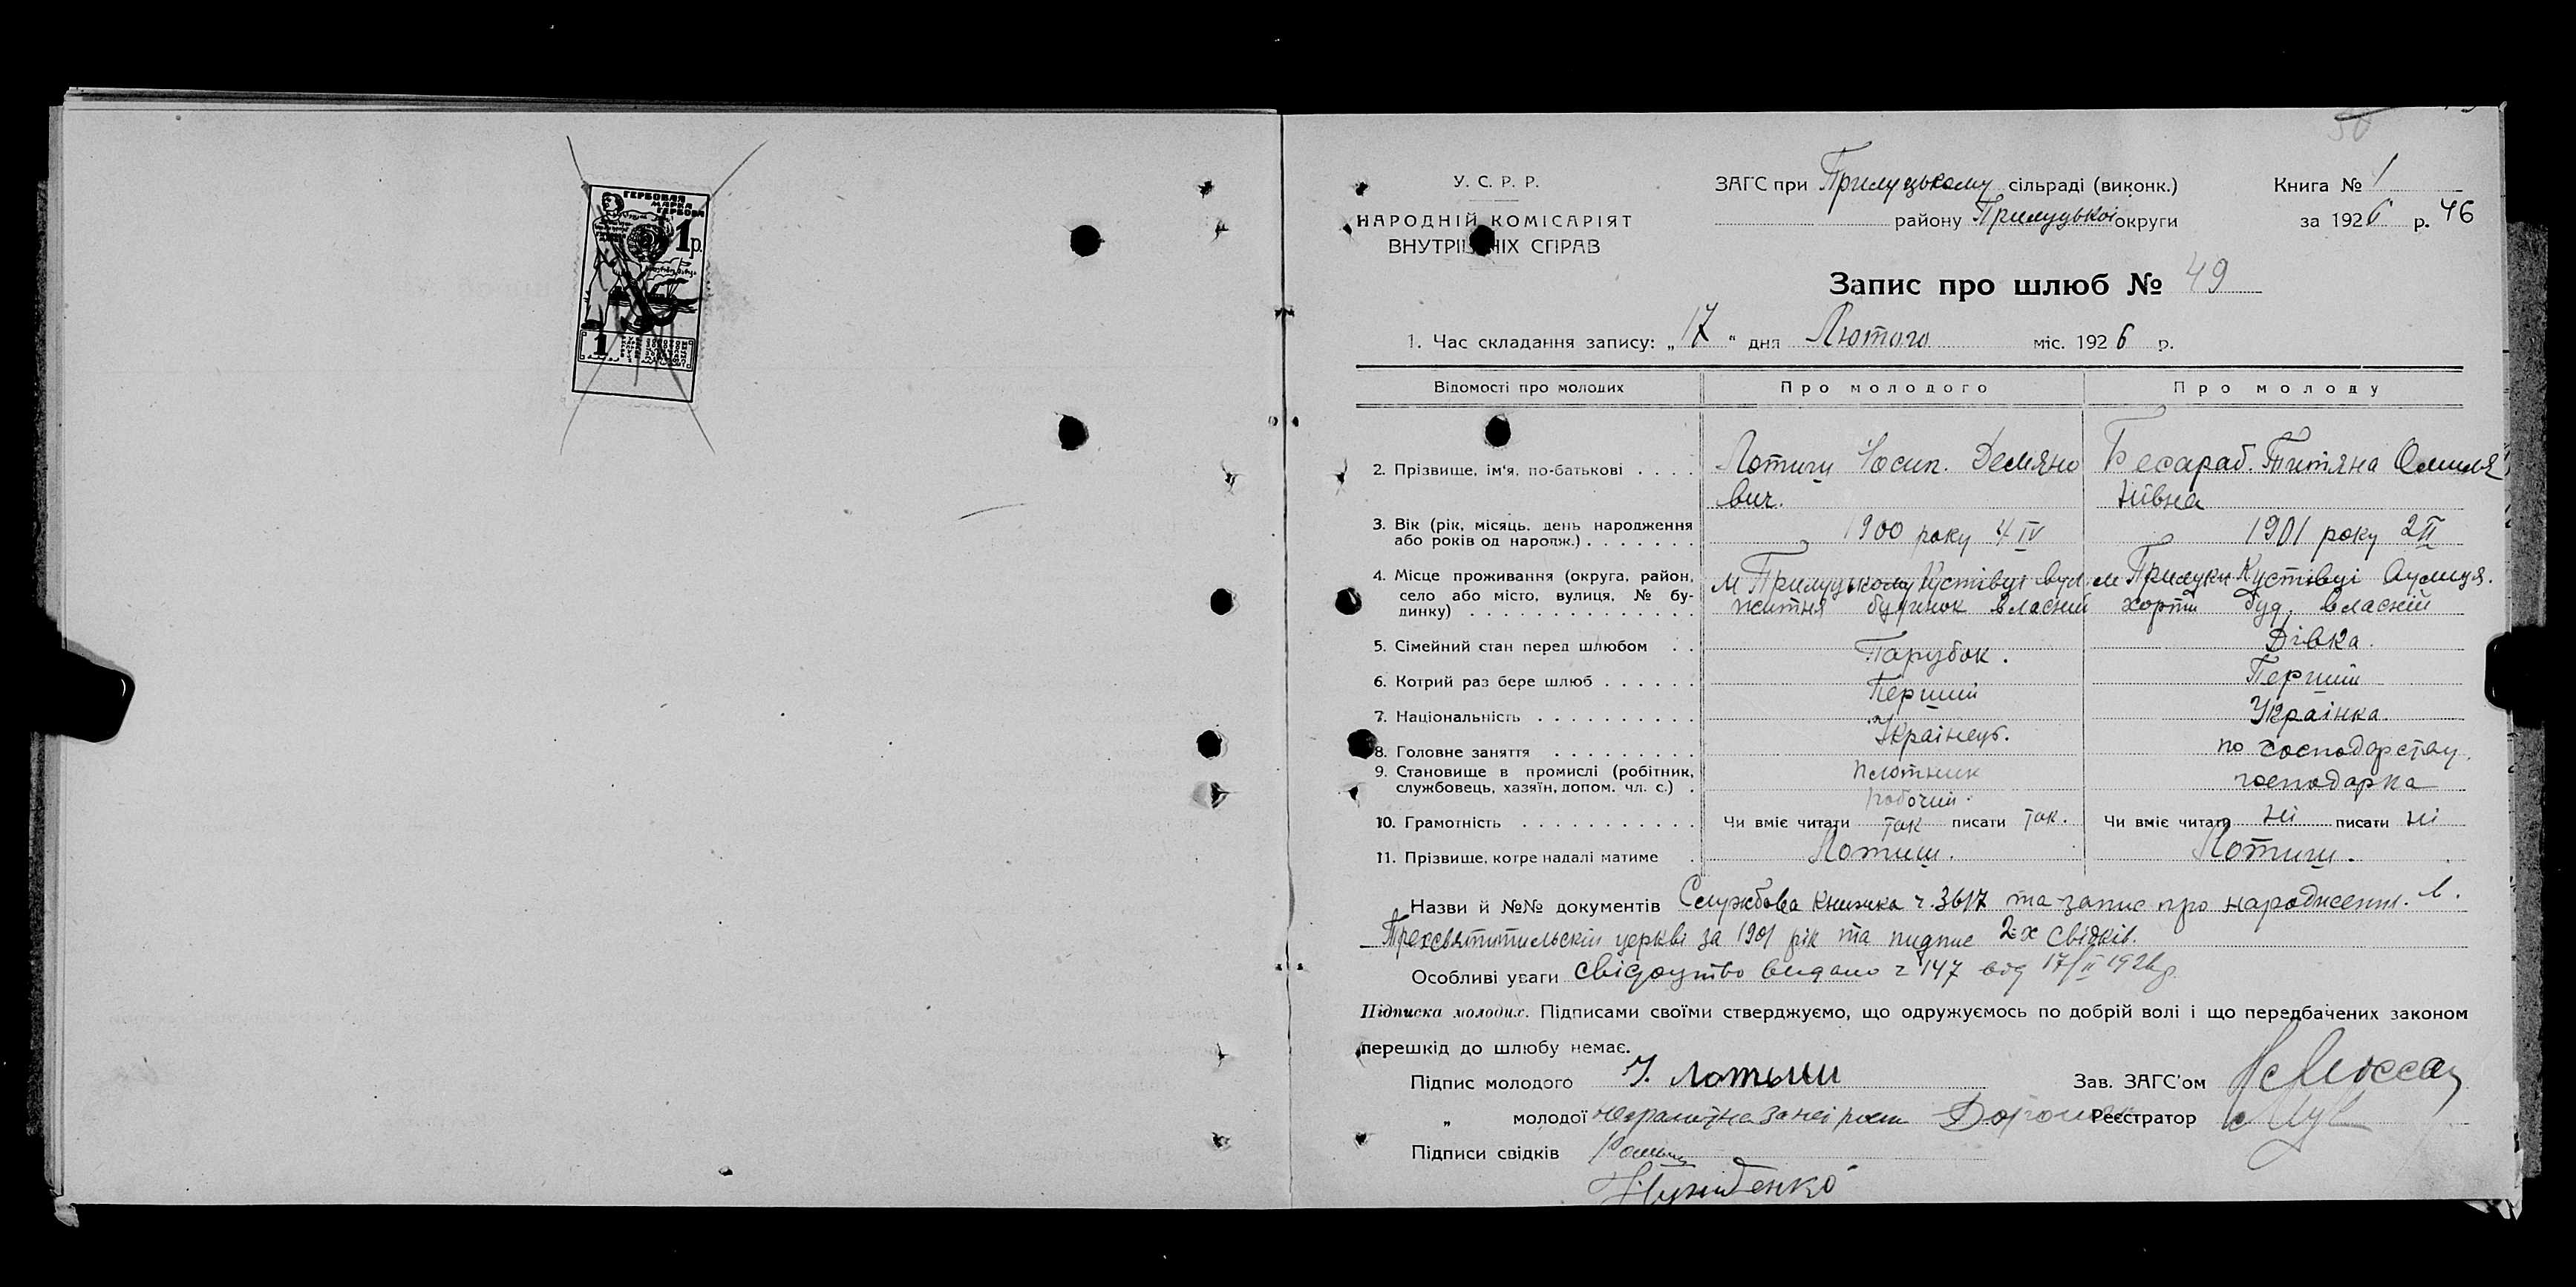 ГЕРБОВАЯ
МАРКА
ГЕРБОВА
1 р.
1
У. С. Р. Р.
НАРОДНІЙ КОМІСАРІЯТ
ВНУТРІШНІХ СПРАВ
ЗАГС при Прилуцькому сільраді (виконк.)
району Прилуцької округи
Книга № 1
за 1926 р. 46
Запис про шлюб № 49
1. Час складання запису: „17" дня Лютого міс. 1926 р.
Відомості про молодих Про молодого Про молоду
2. Прізвище, ім'я, по-батькові . . . . Лотиш Йосип. Демяно Бесараб. Титяна Омиля
вич. нівна
3. Вік (рік, місяць, день народження
або років од нарояж.) . . . . . . . 1900 року 4 IV 1901 року 2 II
4. Місце проживання (округа, район, м Прилуцькому Кустівці вул. м Прилуки Кустівці вулиця.
село або місто, вулиця, № бу- житня будинок власний буд. власній
динку) . . . . . . . . . . . . . .
5. Сімейний стан перед шлюбом . . Парубок. Дівка.
6. Котрий раз бере шлюб . . . . . . Перший Перший
7. Національність . . . . . . . . . . Українець. Українка.
8. Головне заняття . . . . . . . . . Плотник по господарству.
9. Становище в промислі (робітник,
службовець, хазяїн, допом. чл. с.) . Робочий. господарка
10. Грамотність . . . . . . . . . . . Чи вміє читати так писати так. Чи вміє читати ні писати ні
11. Прізвище, котре надалі матиме . Лотиш. Лотиш.
Назви й №№ документів Службова книжка ч 3617 та запис про народження. в.
Трехсвятительскій церкві за 1901 рік та пидпис 2-х свідків.
Особливі уваги Свідоцтво видано ч 147 від 17/II 1926 р.
Підписка молодих. Підписами своїми стверджуємо, що одружуємось по добрій волі і що передбачених законом
перешкід до шлюбу немає.
Підпис молодого І. Лотыш Зав. ЗАГС'ом
„ молодої неграмотна за неї росп Реєстратор
Підписи свідків